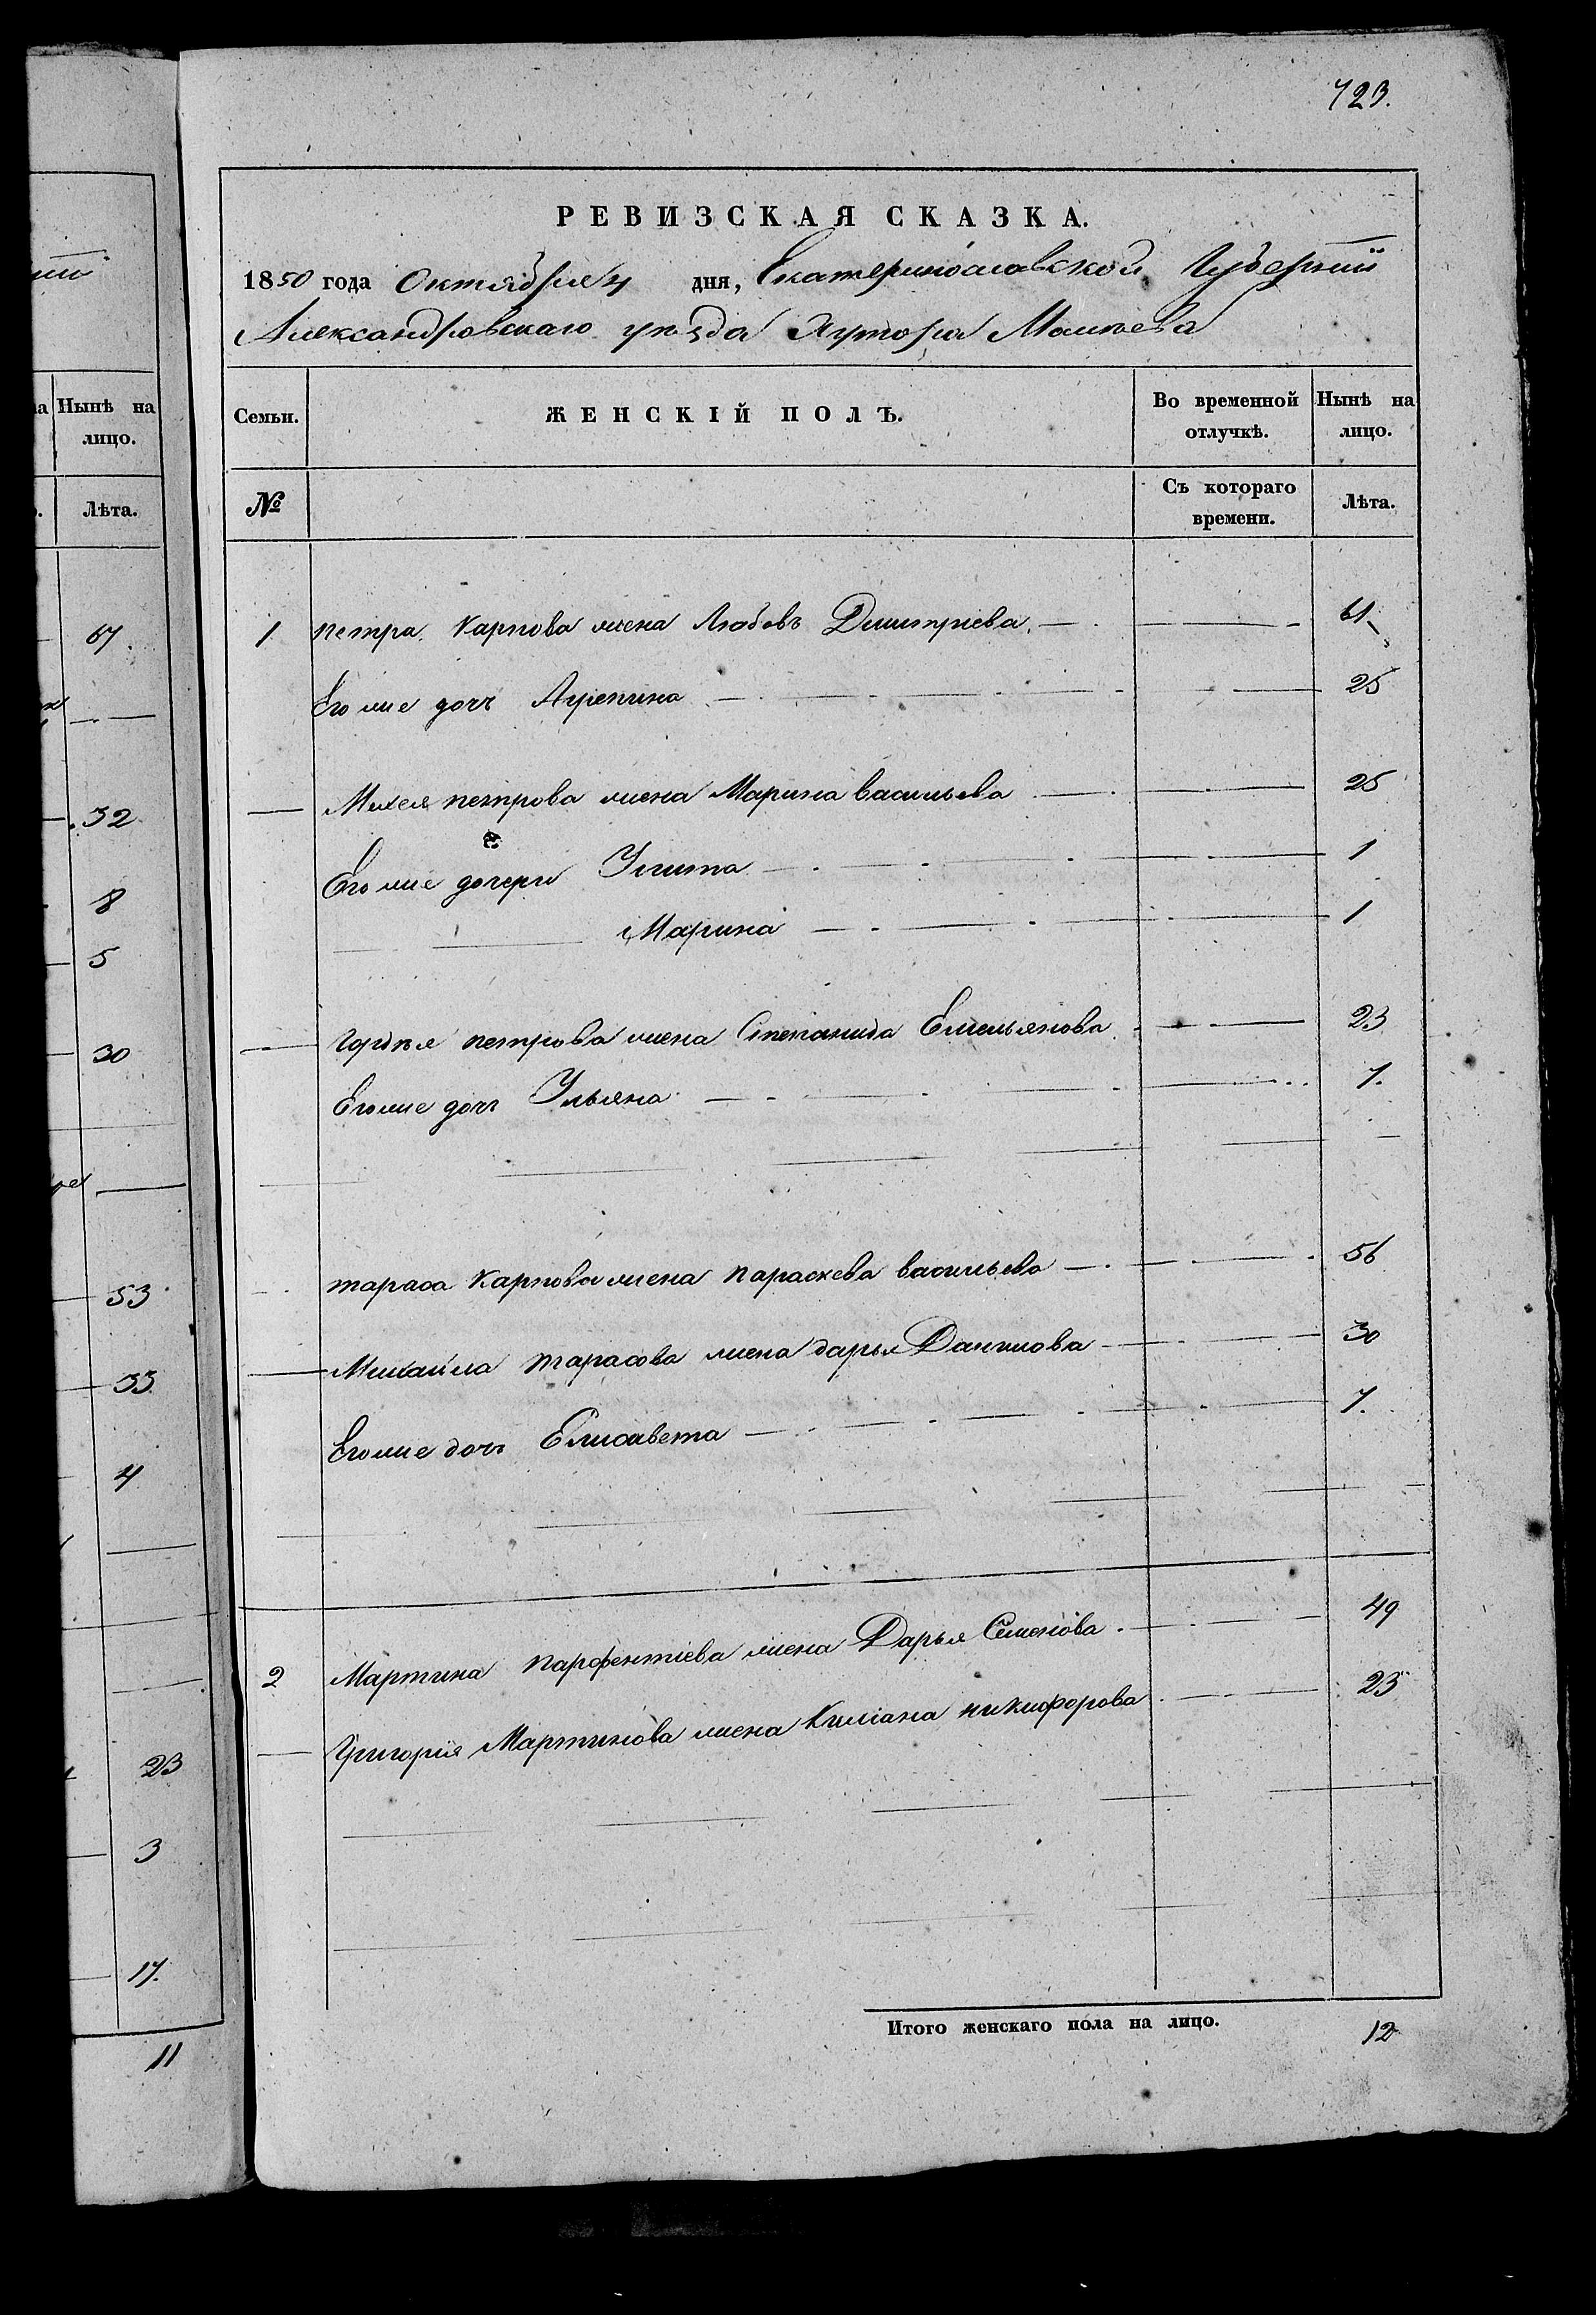 723.
РЕВИЗСКАЯ СКАЗКА.
1850 года Октября 4 дня, Екатеринославской Губернiи
Александровскаго уѣзда Хутора
Семьи.
ЖЕНСКІЙ ПОЛЪ.
Во временной отлучкѣ.
Нынѣ на лицо.
№
Съ котораго времени.
Лѣта.
1 петра Карпова жена Любовь Димитріева 61
Его же дочь Агрепина 25
Михея петрова жена Марина васильева 25
Его же дочери Улита 1
Марина 1
гордѣя петрова жена Степанида Емельянова 23
Его же дочь Ульяна 7.
тараса Карпова жена параскева васильева 56
Михайла тарасова жена дарья Данилова 30
Его же дочь Елисавета 7.
2 Мартина парфентіева жена Дарья Семенова 49
Григорія Мартинова жена никифорова 23
Итого женскаго пола на лицо. 12
Нынѣ на
лицо.
Лѣта.
67.
32
8
5
30
53
33
4
23
3
17.
11